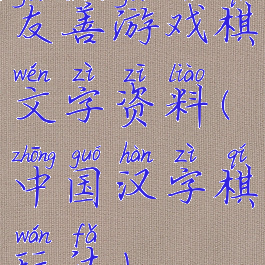 友善游戏棋
wén zì zī liào
文字资料(
zhōng guó hàn zì qí
中国汉字棋
wán fǎ
玩法)